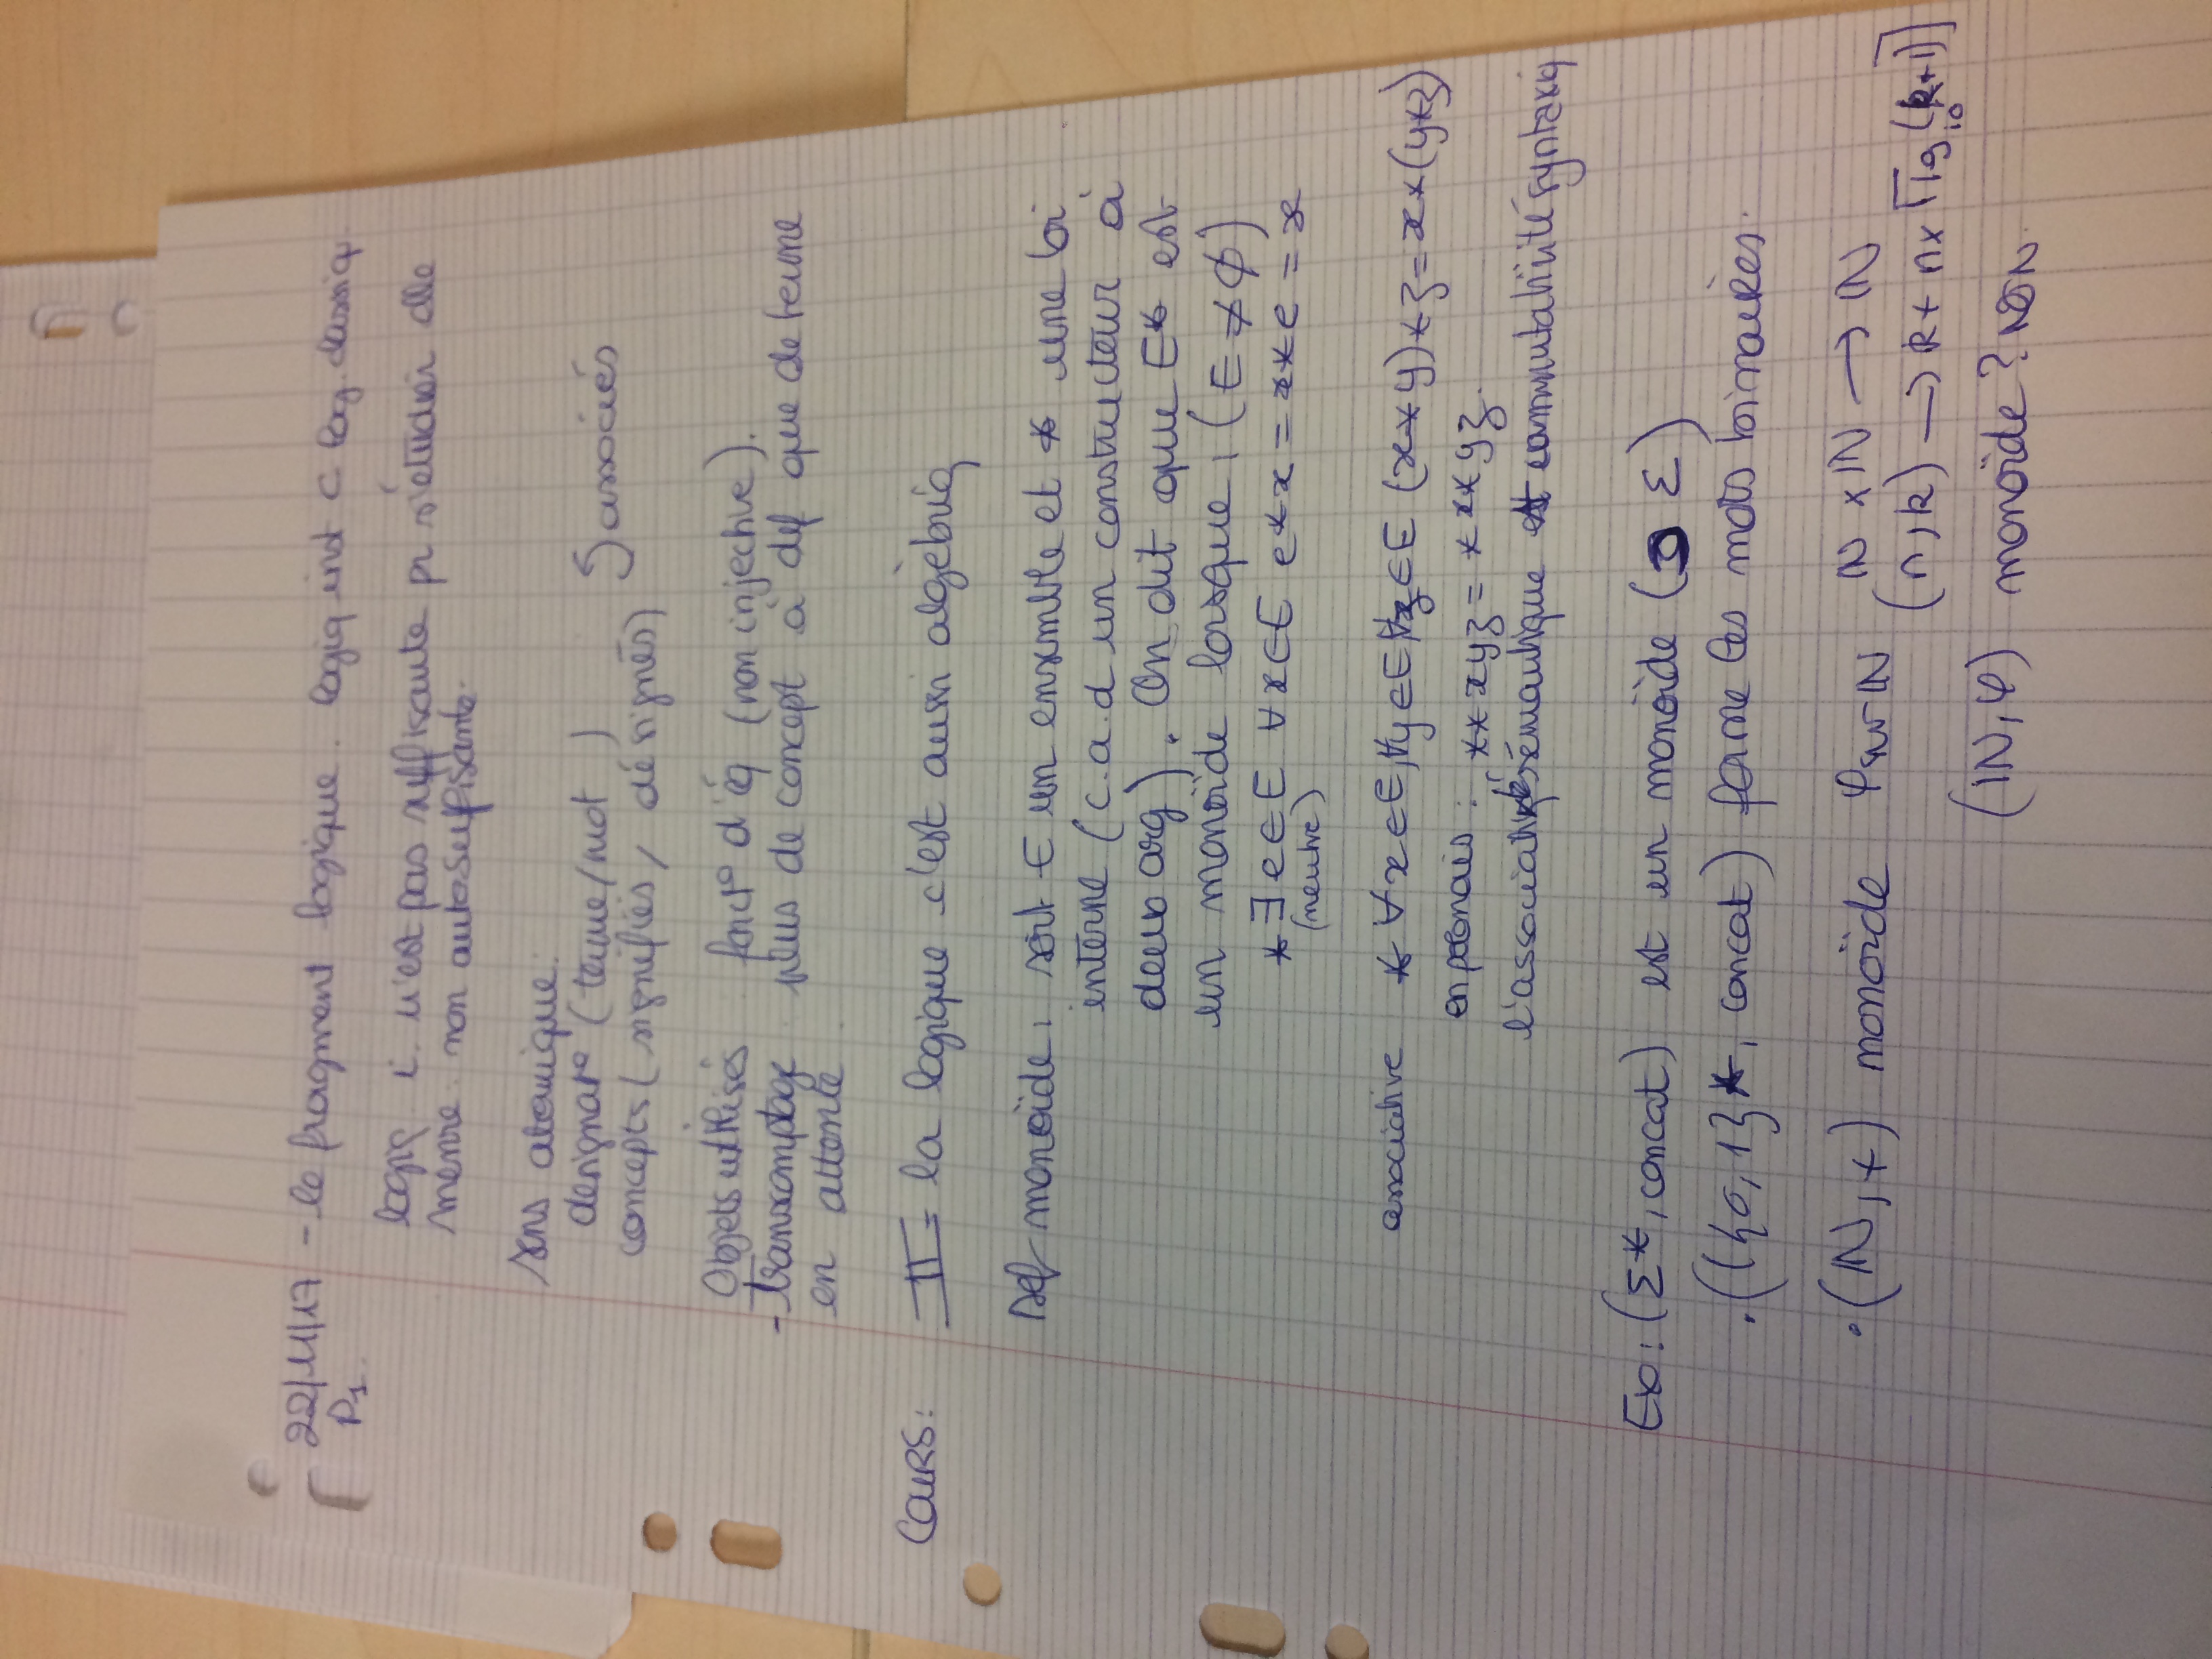 22/11/17 - le fragment logique. logiq int ⊂ log. classiq.
P1.
logiq i. n'est pas suffisante pr s'étudier elle
même. non autosuffisante.
Sens atomique:
designat° (terme/mot ) associés
concepts (signifiés, désignés)
Objets utilisés fonct° d'éq (non injective).
- plus de concept à def que de terme
en attente.
COURS: II - la logique c'est aussi algèbriq
Def monoïde: soit E un ensemble et * une loi
interne (c.a.d un constructeur à
deux arg). On dit que E* est
un monoïde lorsque, (E ≠ ∅)
* ∃ e ∈ E ∀ x ∈ E e * x = x * e = x
(neutre)
associative * ∀ x ∈ E, ∀y ∈ E, ∀z ∈ E (x * y) * z = x * (y * z)
en polonais: ** xyz = * x * yz.
l'associativité sémantique est commutativité syntaxiq
Ex: (Σ*, concat) est un monoïde ( ε)
. (({0, 1}*, concat) forme les mots binaires.
. (ℕ, +) monoïde φ sur ℕ ℕ × ℕ → ℕ
(n, k) → k + n × ⌈lg₁₀(k+1)⌉
(ℕ, φ) monoïde? NON.